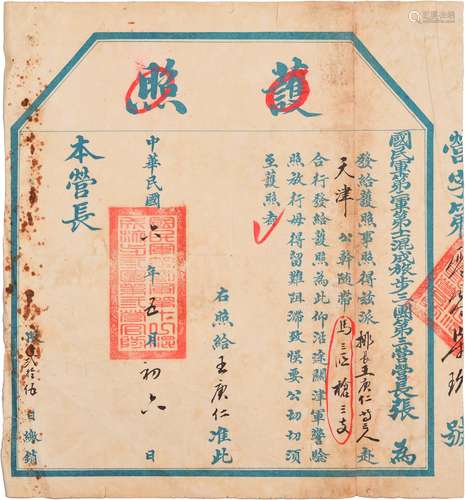 護照
營字第
號
國民軍第二軍第混成旅步三團第三營營長張為
發給護照事照得茲派排長王庚仁等三人赴
天津公幹隨帶馬三匹槍三支
合行發給護照為此仰沿途關津軍警驗
照放行毋得留難阻滯致悮要公切切須
至護照者
右照給王庚仁准此
中華民國六年五月初六日
本營長
限貳拾伍日繳銷